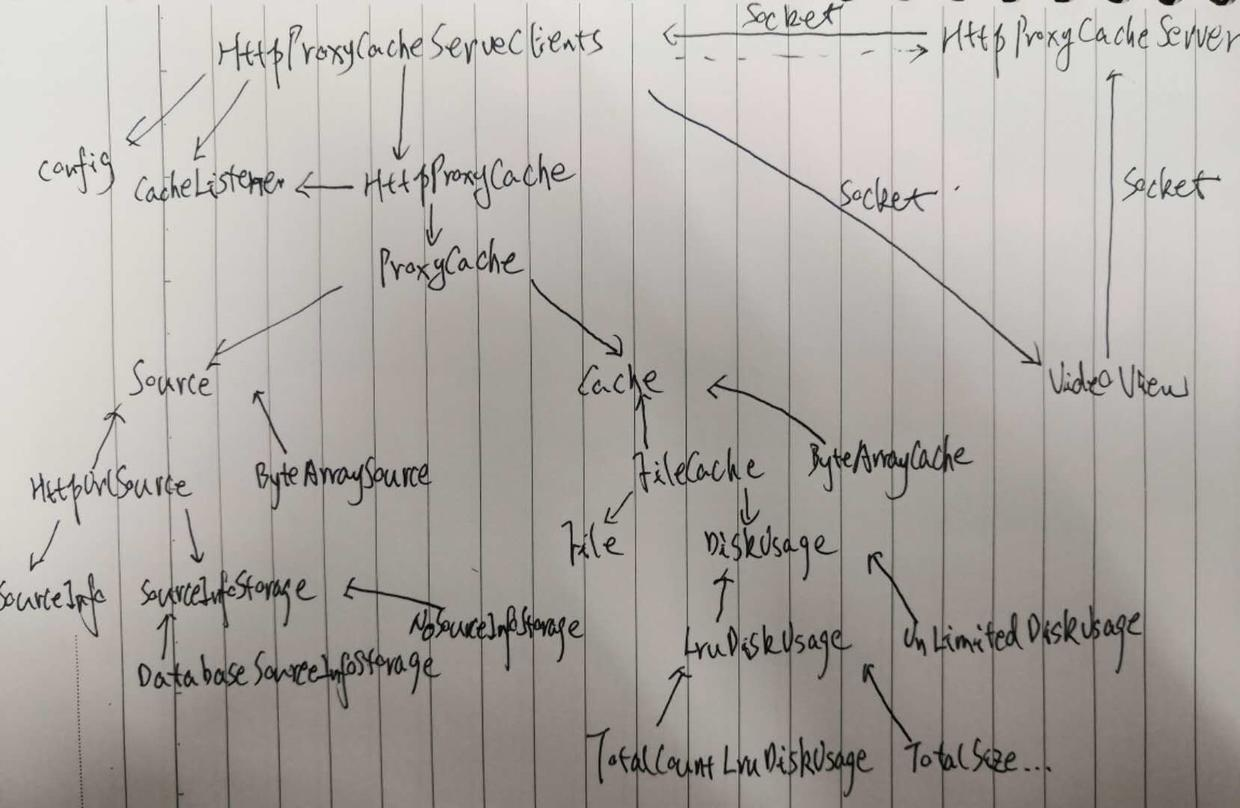 Socket
HttpProxyCacheServeClients
HttpProxyCacheServer
Config
CacheListener
HttpProxyCache
Socket
Socket
ProxyCache
Source
Cache
VideoView
HttpUrlSource
ByteArraySource
FileCache
ByteArrayCache
File
DiskUsage
SourceInfo
SourceInfoStorage
NoSourceInfoStorage
LruDiskUsage
UnLimitedDiskUsage
DatabaseSourceInfoStorage
TotalCountLruDiskUsage
TotalSize...